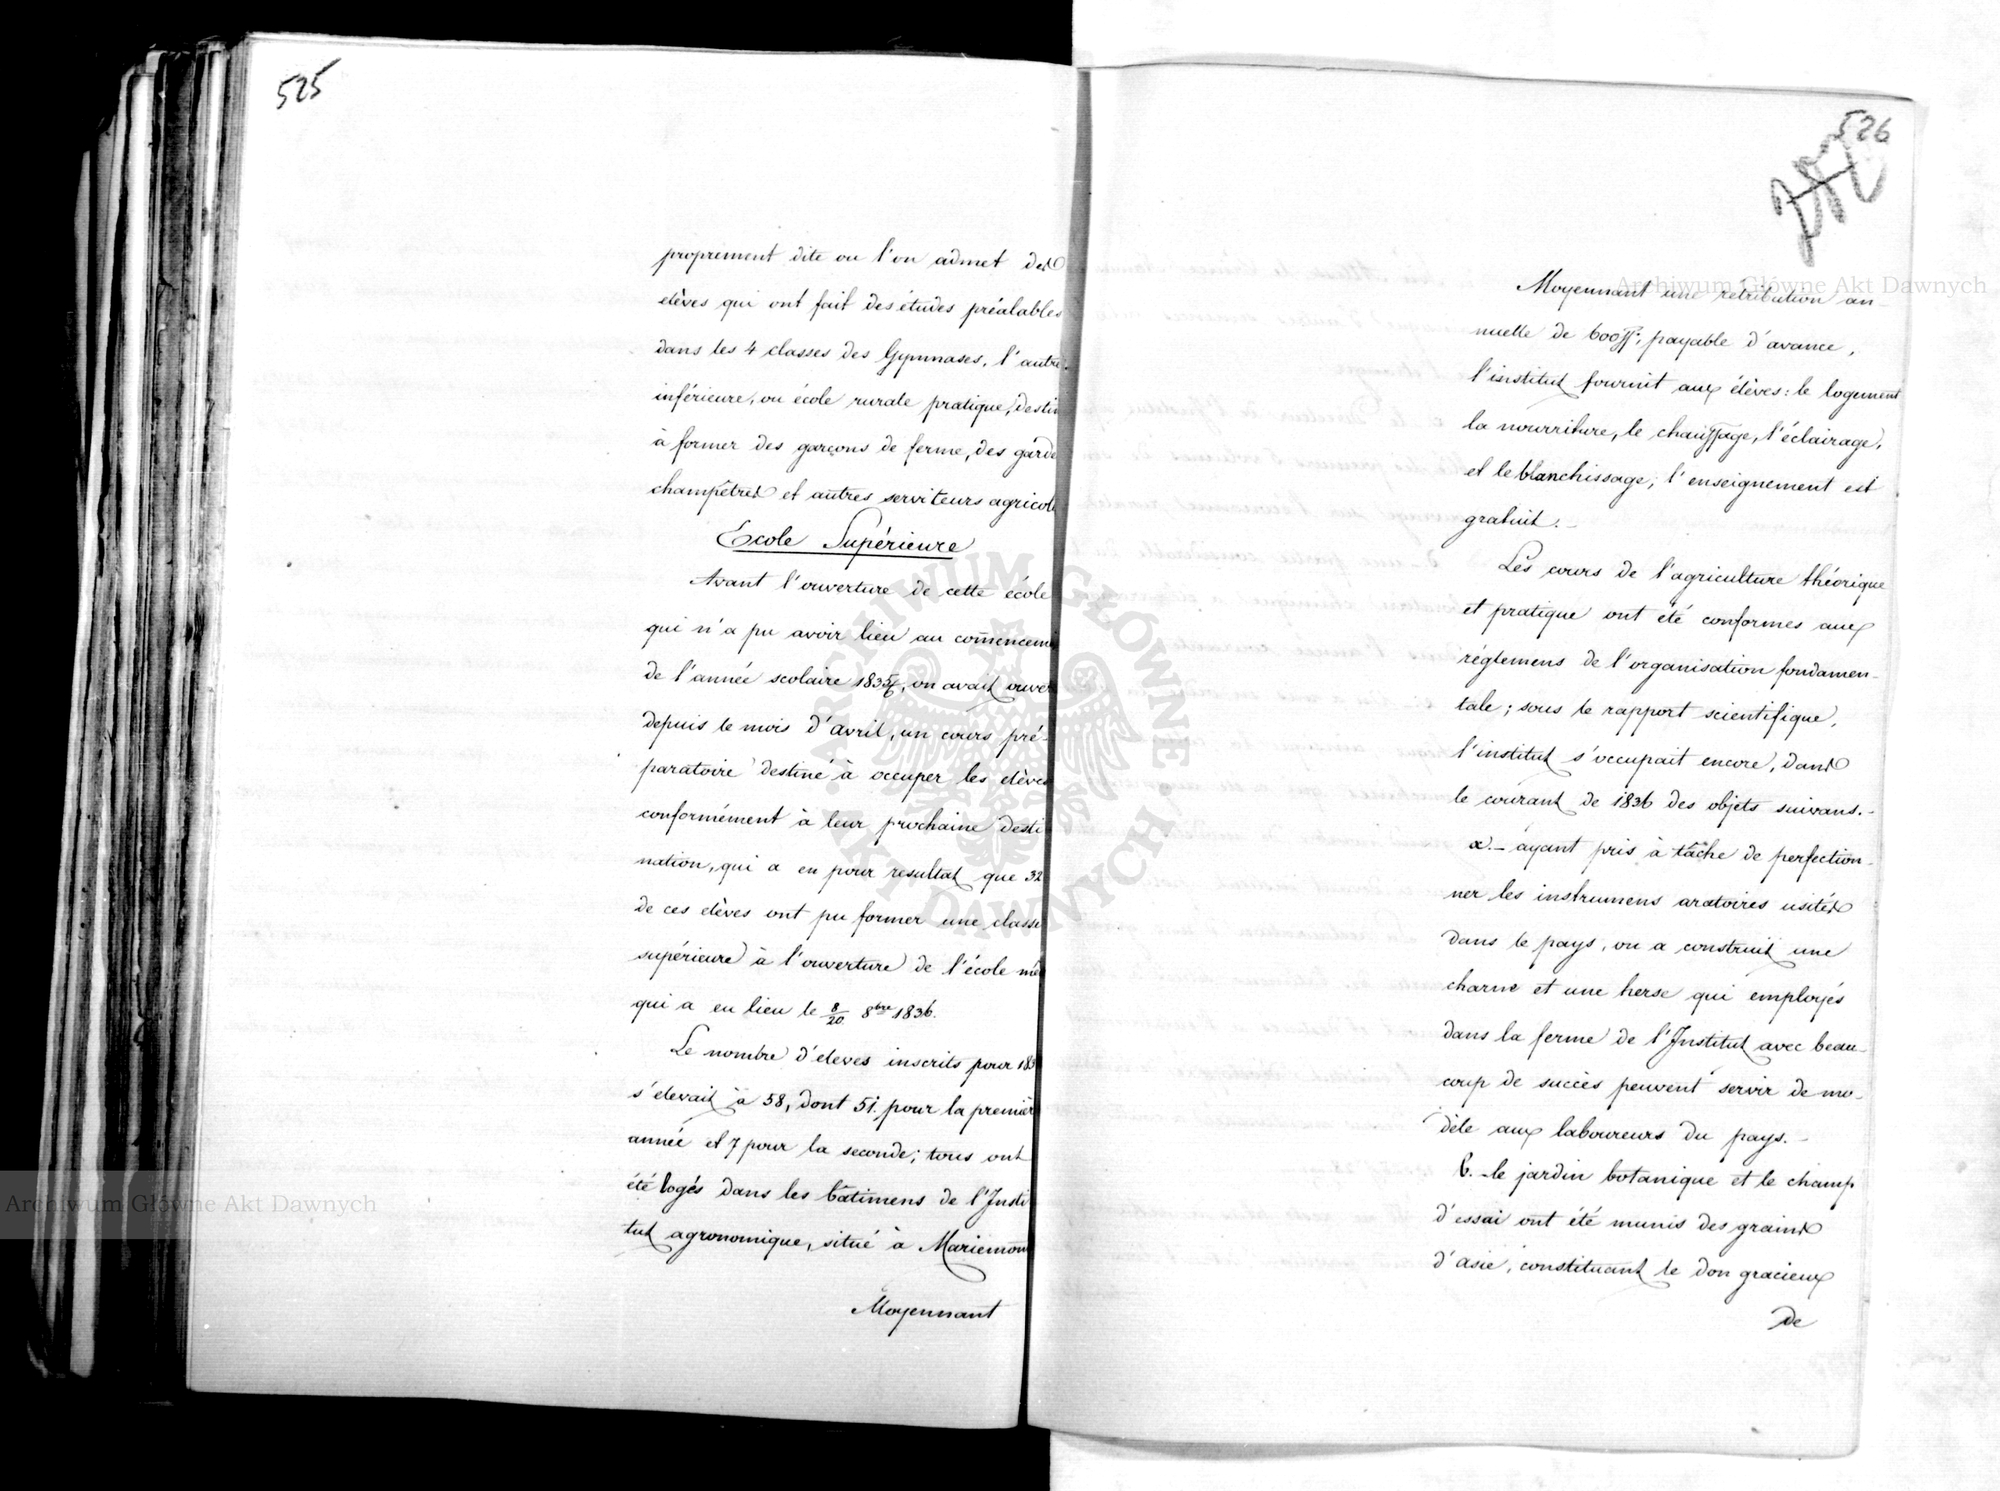 525
proprement dite ou l'on admet des
elèves qui ont fait des études préalables
dans les 4 classes des Gymnases, l'autre
inférieure, ou école rurale pratique, destin
à former des garçons de ferme, des garde
champêtres et autres serviteurs agricol
Ecole Supérieure
Avant l'ouverture de cette école
qui n'a pu avoir lieu au com̄encem
de l'année scolaire 1835/6, on avait ouver
depuis le mois d'avril, un cours pré-
paratoire destiné à occuper les elèves
conformément à leur prochaine desti
nation, qui a eu pour resultat que 32
de ces elèves ont pu former une classe
supérieure à l'ouverture de l'école mê
qui a eu lieu le 8/20 8bre 1836.
Le nombre d'eleves inscrits pour 183
s'elevait à 58, dont 51. pour la premièr
année et 7 pour la seconde; tous ont
été logés dans les bâtimens de l'Insti
tut agronomique, situé à Mariemon
Moyennant
526
Moyennant une retribution an-
nuelle de 600 ff. payable d'avance,
l'institut fournit aux élèves: le logement
la nourriture, le chauffage, l'éclairage,
et le blanchissage; l'enseignement est
gratuit.-
Les cours de l'agriculture théorique
et pratique ont été conformes aux
réglemens de l'organisation fondamen-
tale; sous le rapport scientifique,
l'institut s'occupait encore, dans
le courant de 1836 des objets suivans.-
a.- ayant pris à tâche de perfection-
ner les instrumens aratoires usités
dans le pays, on a construit une
charue et une herse qui employés
dans la ferme de l'Institut avec beau-
coup de succès peuvent servir de mo-
dèle aux laboureurs du pays.-
b.- le jardin botanique et le champ
d'essai ont été munis des grains
d'Asie, constituant le don gracieux
de
Archiwum Główne Akt Dawnych
Archiwum Główne Akt Dawnych
ARCHIWUM GŁÓWNE AKT DAWNYCH